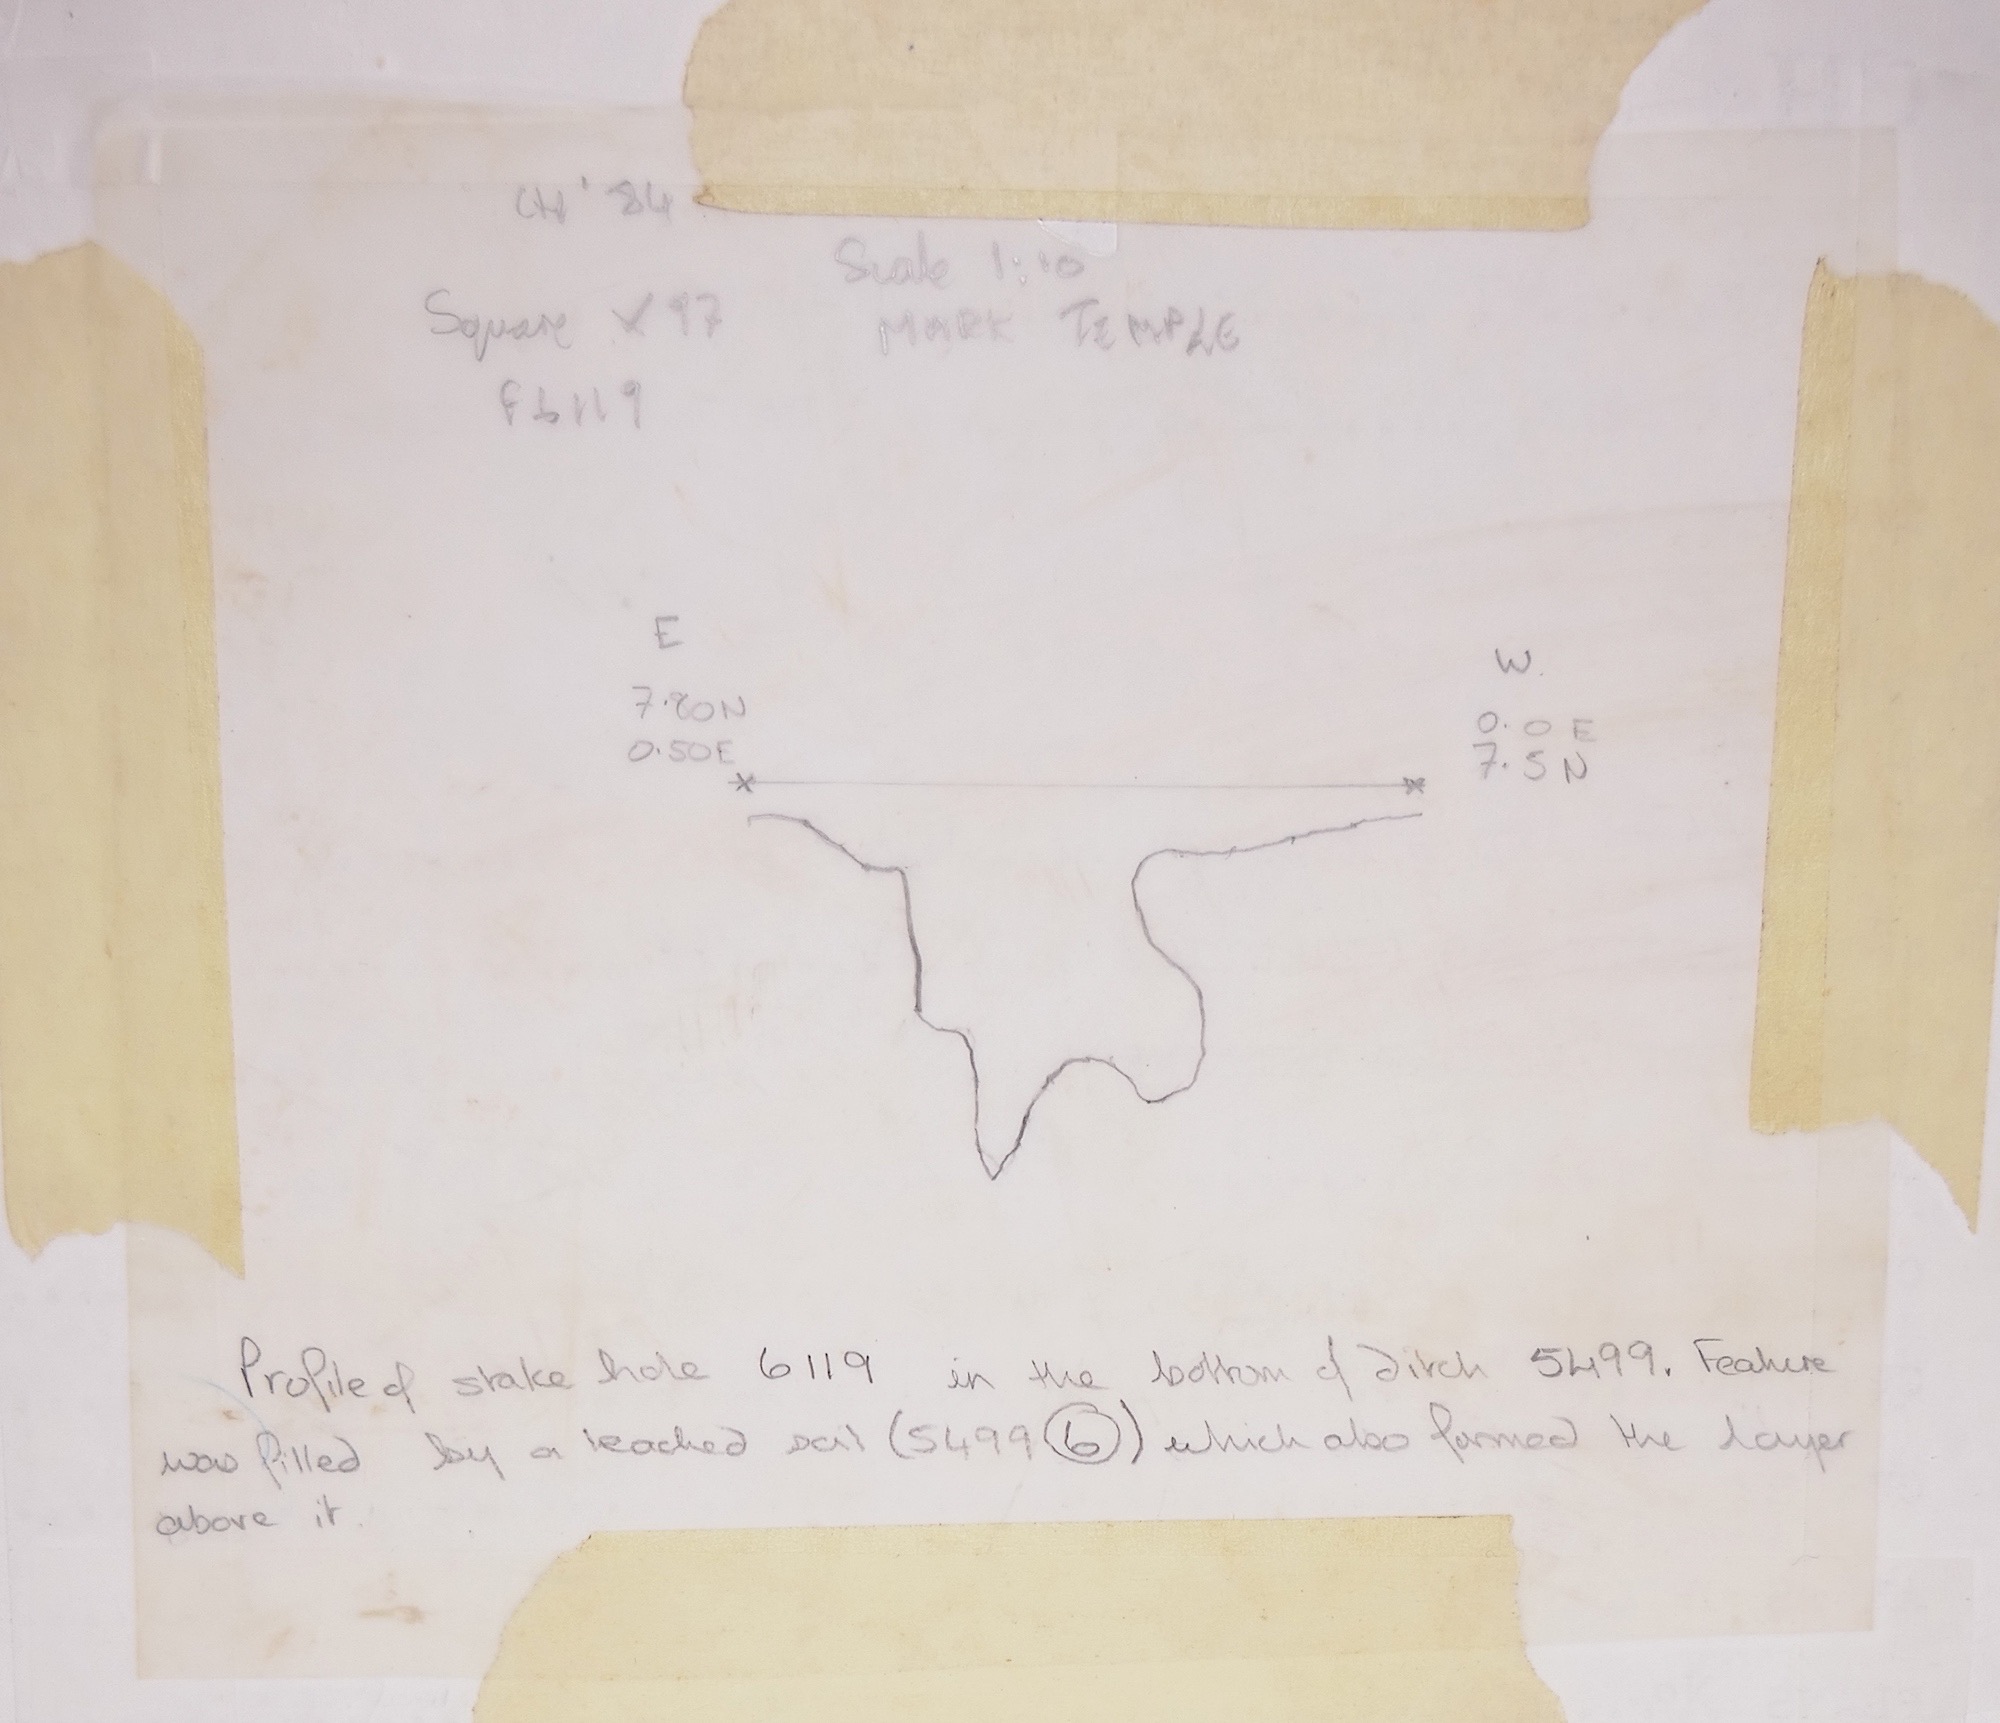 CH '84
Scale 1:10
Square X97
MARK TEMPLE
F6119
E
7.80N
0.50E
W.
0.0 E
7.5 N
Profile of stake hole 6119 in the bottom of ditch 5499. Feature
was filled by a leached soil (5499 6) which also formed the layer
above it.